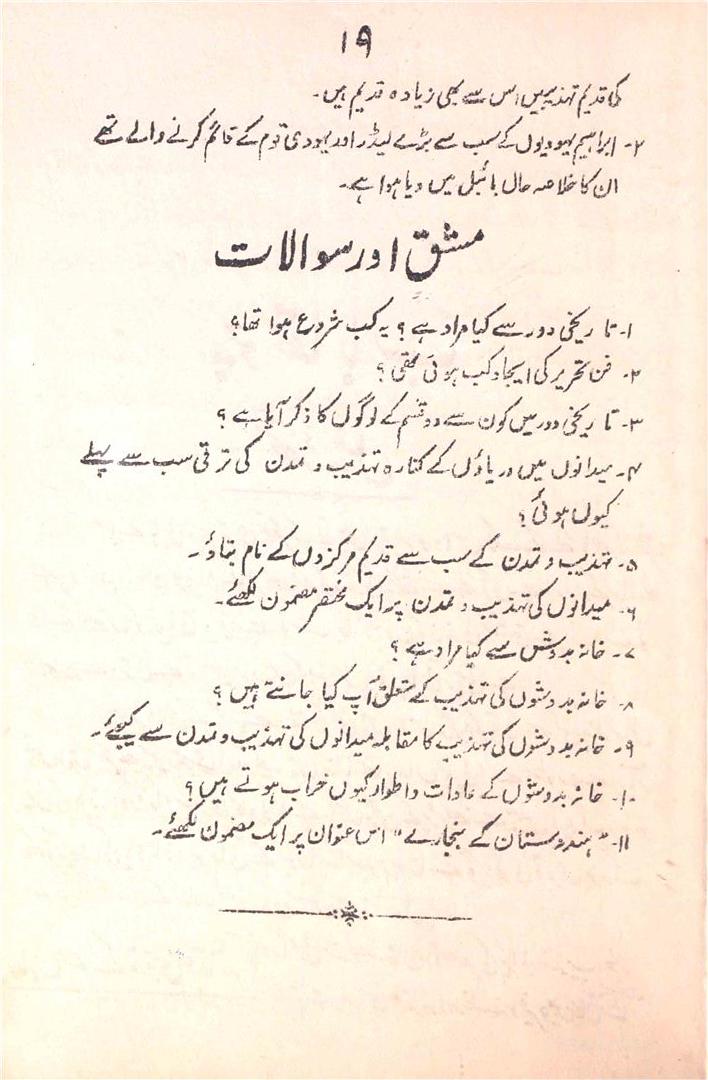 ۱۹
کی قدیم تہذیبیں اس سے بھی زیادہ قدیم ہیں۔
۲- ابراہیم یہودیوں کے سب سے بڑے لیڈر اور یہودی قوم کے قائم کرنے والے تھے
ان کا خلاصہ حال بائبل میں دیا ہوا ہے۔
مشق اور سوالات
۱- تاریخی دور سے کیا مراد ہے؟ یہ کب شروع ہوا تھا؟
۲- فن تحریر کی ایجاد کب ہوئی تھی؟
۳- تاریخی دور میں کون سے دو قسم کے لوگوں کا ذکر آیا ہے؟
۴- میدانوں میں دریاؤں کے کنارہ تہذیب و تمدن کی ترقی سب سے پہلے
کیوں ہوئی؟
۵- تہذیب و تمدن کے سب سے قدیم مرکزوں کے نام بتاؤ۔
۶- میدانوں کی تہذیب و تمدن پر ایک مختصر مضمون لکھئے۔
۷- خانہ بدوش سے کیا مراد ہے؟
۸- خانہ بدوشوں کی تہذیب کے متعلق آپ کیا جانتے ہیں؟
۹- خانہ بدوشوں کی تہذیب کا مقابلہ میدانوں کی تہذیب و تمدن سے کیجئے۔
۱۰- خانہ بدوشوں کے عادات و اطوار کیوں خراب ہوتے ہیں؟
۱۱- "ہندوستان کے بنجارے" اس عنوان پر ایک مضمون لکھئے۔